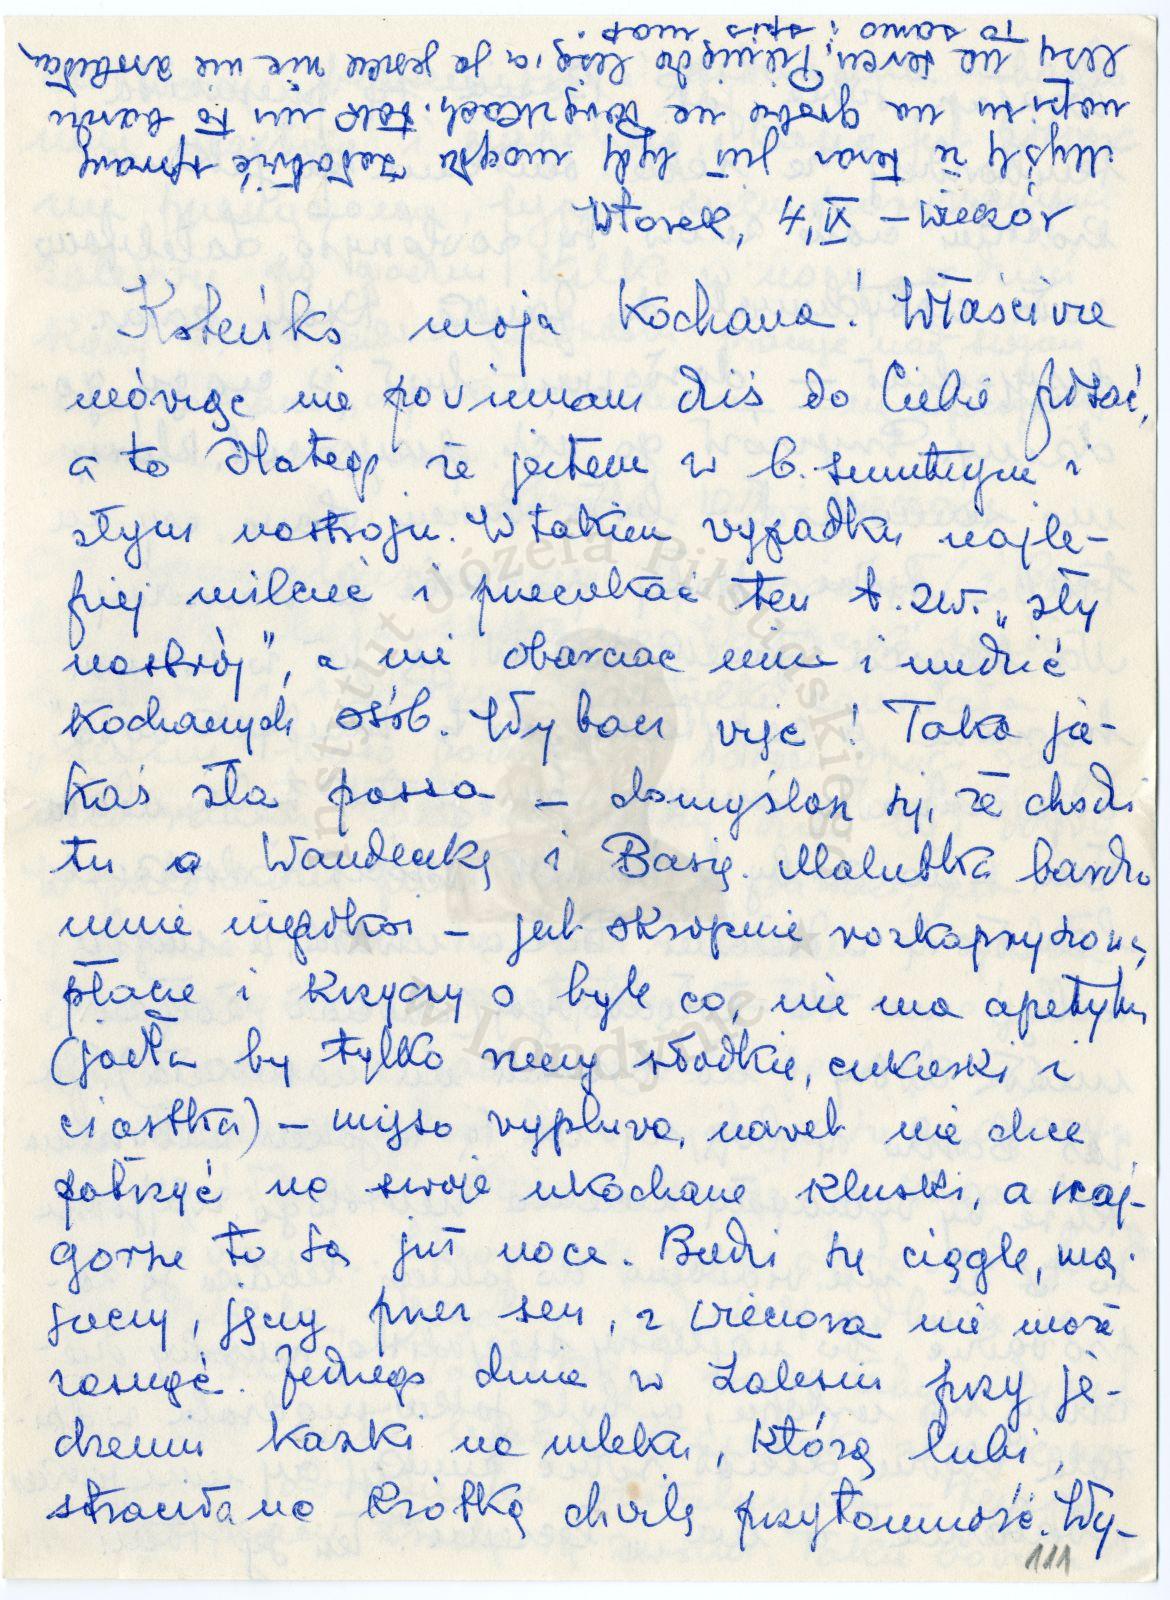 Wtorek, 4, IX – wieczór
Koteńko moja Kochana! Właściwie
mówiąc nie powinnam dziś do Ciebie pisać,
a to dlatego że jestem w b. smutnym i
złym nastroju. W takim wypadku najle-
piej milczeć i przeczekać ten t. zw. „zły
nastrój”, a nie obarczać nim i nudzić
kochanych osób. Wybacz więc! Taka ja-
kaś zła passa – domyślasz się, że chodzi
tu o Wandeczkę i Basię. Malutka bardzo
mnie niepokoi – jest okropnie rozkapryszona,
płacze i krzyczy o byle co, nie ma apetytu
(jadła by tylko rzeczy słodkie, cukierki i
ciastka) – mięso wypluwa, nawet nie chce
patrzyć na swoje ukochane kluski, a naj-
gorsze to są już noce. Budzi się ciągle, ma-
jaczy, jęczy przez sen, z wieczora nie może
zasnąć. Jednego dnia w Zalesiu przy je-
dzeniu kaszki na mleku, którą lubi,
straciła na krótką chwilę przytomność. Wy-
111
myślę że teraz już będę mogła załatwić sprawę
napisu na grobie na Powązkach. Tak mi to bardzo
leży na sercu. Pieniądze leżą, a ja jeszcze nic nie zrobiłam,
to samo i spis map.
Instytut Józefa Piłsudskiego
w Londynie